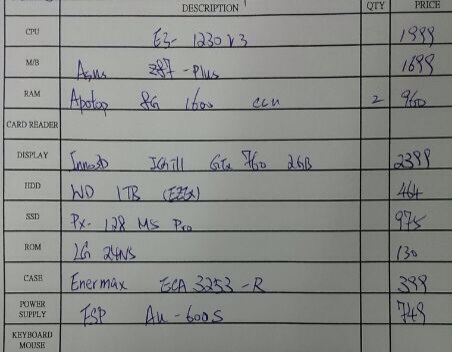 DESCRIPTION QTY PRICE
CPU E3-1230 V3 1999
M/B Asus Z87-Plus 1699
RAM Apotop 8G 1600 2 960
CARD READER
DISPLAY Inno3D IChill Gtx 760 2GB 2399
HDD WD 1TB (EZEX) 464
SSD PX-128 M5 Pro 975
ROM LG 24NS 130
CASE Enermax ECA 3253-R 399
POWER SUPPLY FSP Au-600S 749
KEYBOARD
MOUSE